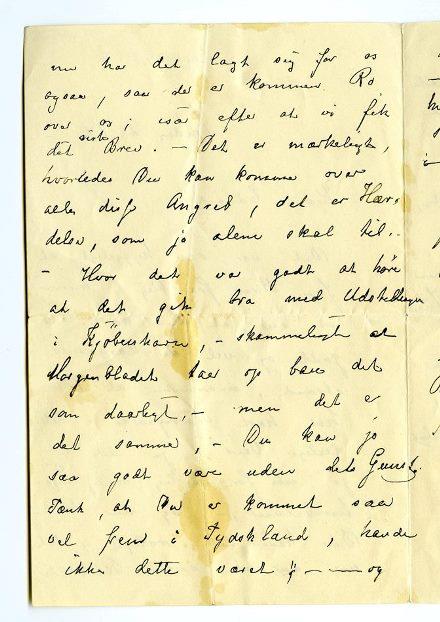 nu har det lagt sig for os
ogsaa, saa der er kommen Ro
over os; især efter at vi fik
dit sidste Brev. – Det er mærkeligt,
hvorledes Du kan komme over
alle disse Angreb, det er Hær-
delse, som jo alene skal til..
– Hvor det var godt at høre
at det gik bra med Udstillingen
i Kjöbenhavn, – skammeligt at
Morgenbladet taer op bare det
som daarligt, – men det er
det samme, – Du kan jo
saa godt være uden dets Gunst.
Tænk, at Du er kommet saa
vel frem i Tydskland, havde
ikke dette været – og